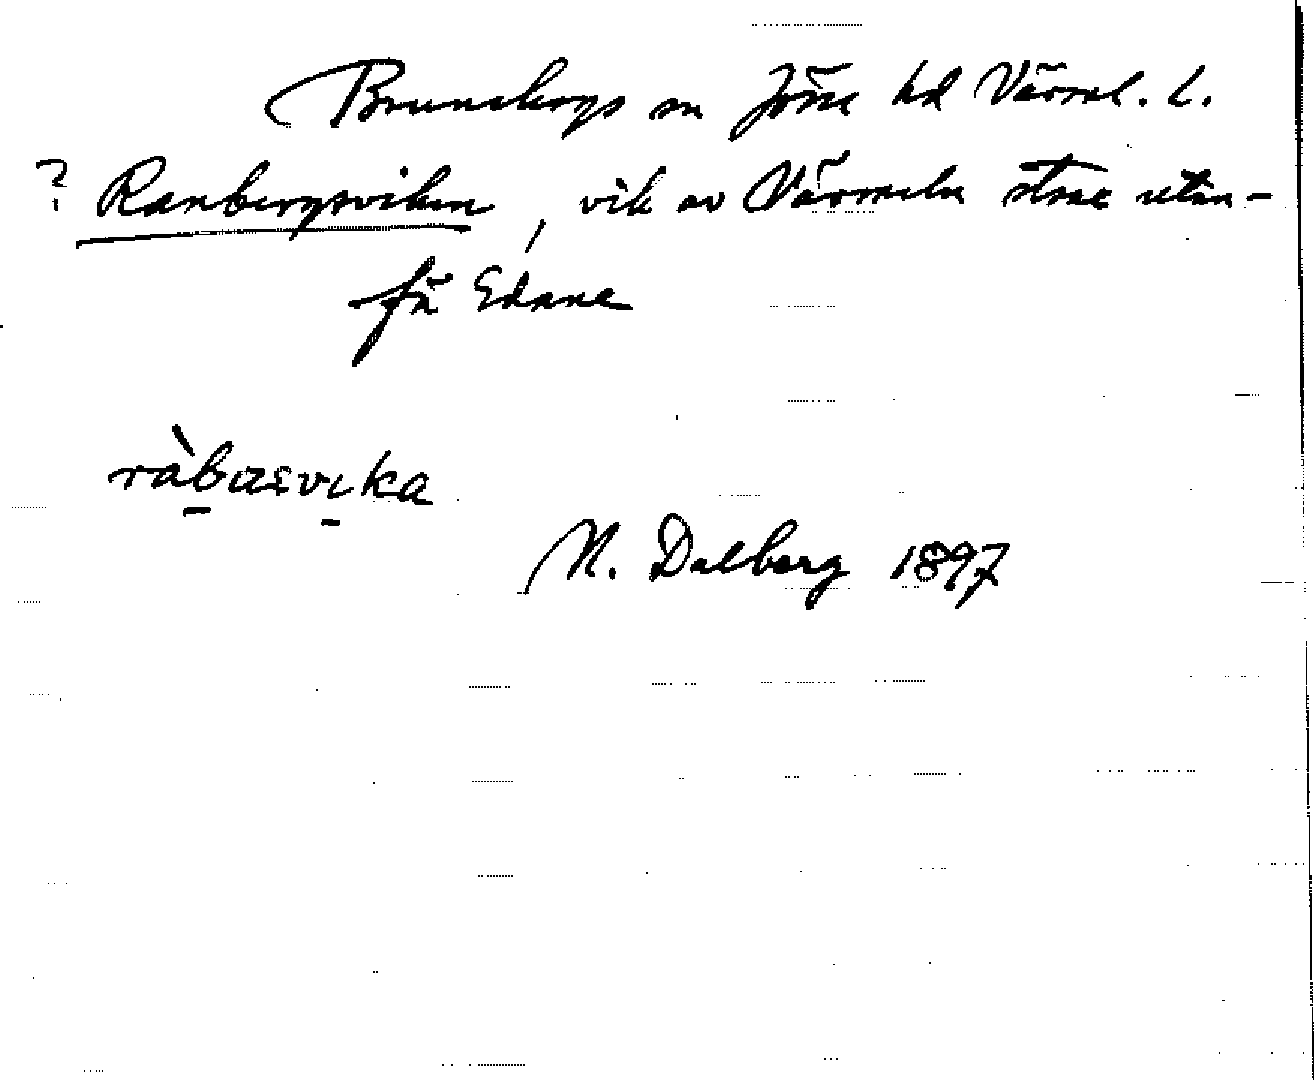 Brunskogs sn Jösse hd Värml. l.
? Ranbergsviken, vik av Värmeln strax utan-
för Edane
ràbasvika
N. Dalberg 1897